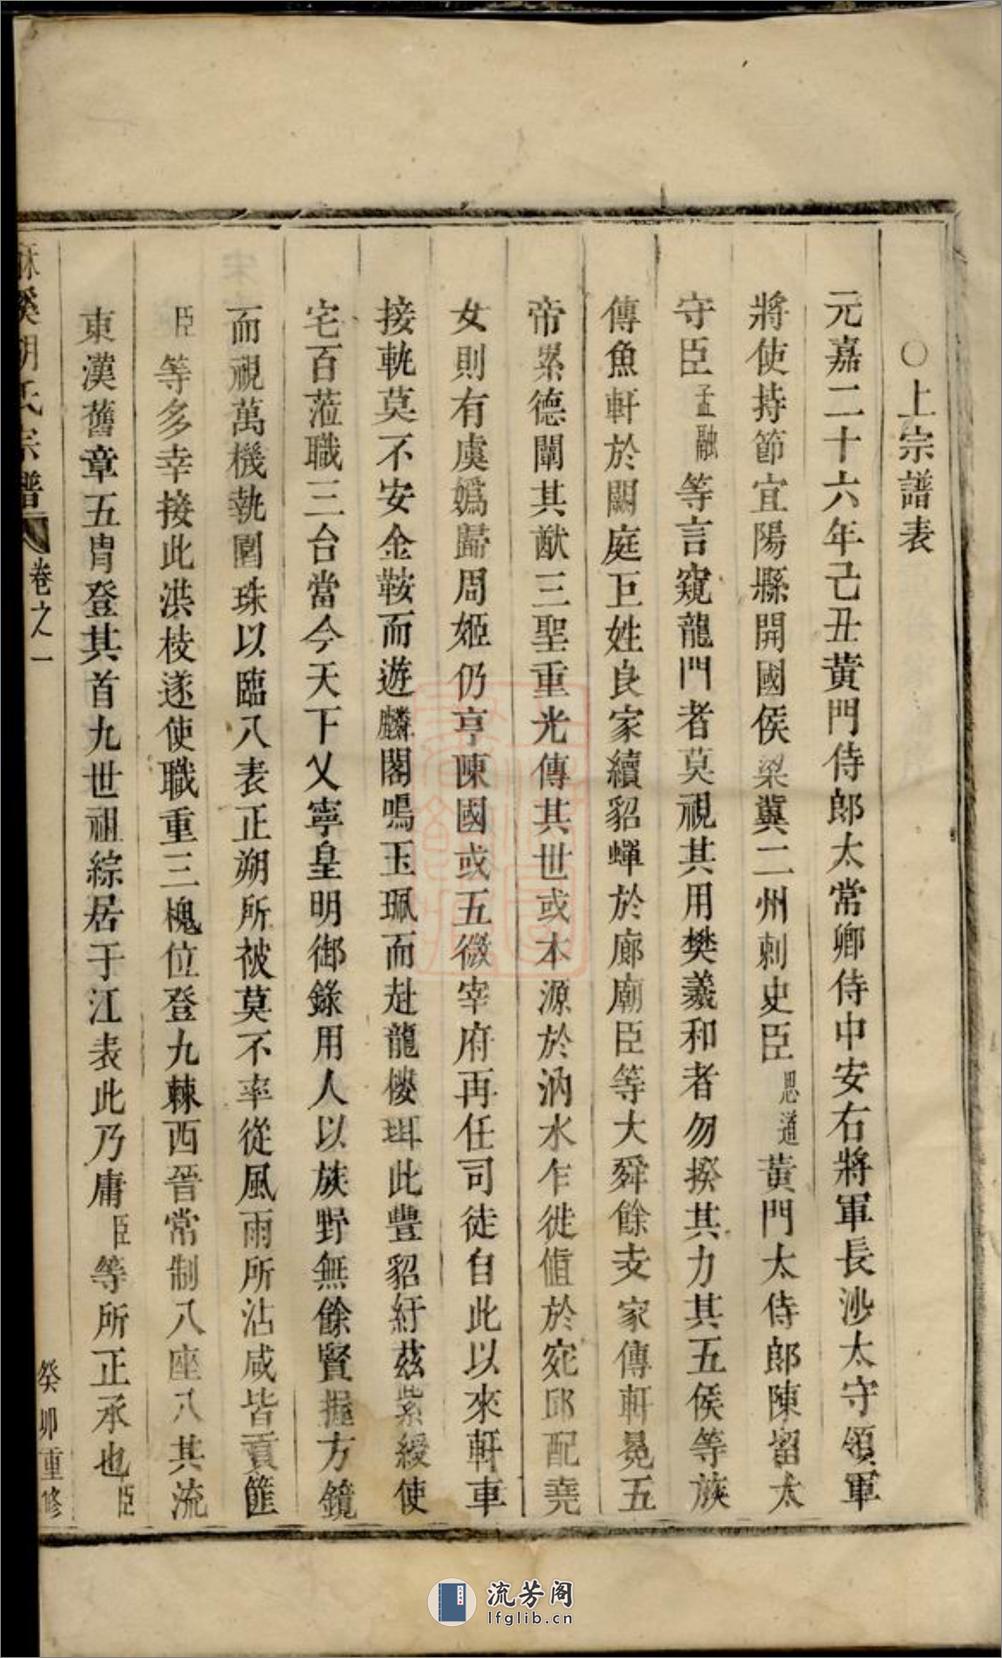 ○上宗譜表
元嘉二十六年己丑黃門侍郎太常卿侍中安右將軍長沙太守領軍
將使持節宜陽縣開國侯梁冀二州刺史臣思道黃門太侍郎陳留太
守臣孟融等言窺龍門者莫視其用樊羲和者勿揆其力其五侯等族
傳魚軒於闕庭巨姓良家續貂蟬於廊廟臣等大舜餘支家傳軒冕五
帝累德闡其猷三聖重光傳其世或本源於汭水乍徙值於宛邱配堯
女則有虞嬀歸周姬仍亨陳國或五徵宰府再任司徒自此以來軒車
接軌莫不安金鞍而遊麟閣鳴玉珮而赴龍樓珥此豐貂紆茲紫綬使
宅百蒞職三台當今天下乂寧皇明御錄用人以族野無餘賢握方鏡
而視萬機執圍珠以臨八表正朔所被莫不率從風雨所沾咸皆貢篚
臣等多幸接此洪枝遂使職重三槐位登九棘西晉常制八座八其流
東漢舊章五胄登其首九世祖綜居于江表此乃庸臣等所正承也臣
溪胡氏宗譜 卷之一 癸卯重修
流芳阁
lfglib.cn